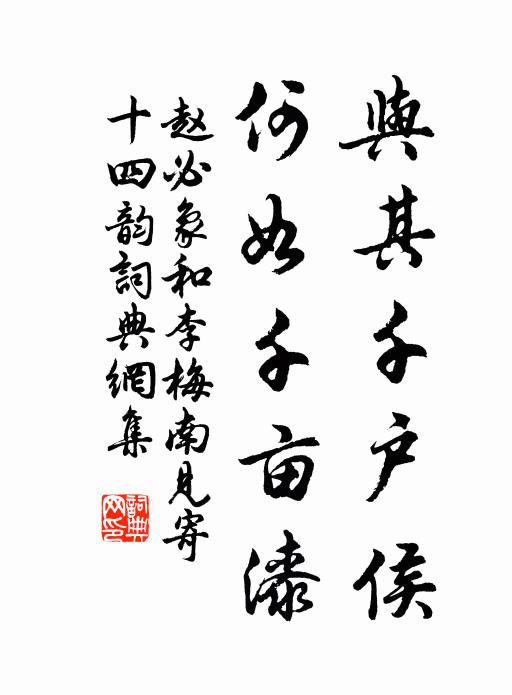 與其千户侯
何如千亩漆
赵必象和李梅南見寄
十四韵詞典網集
詞典
网印